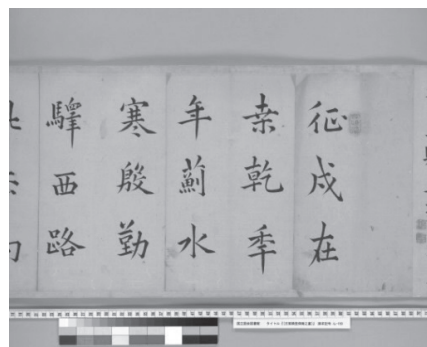 征戍在
桒乾秊
年薊水
寒殷勤
驛西路